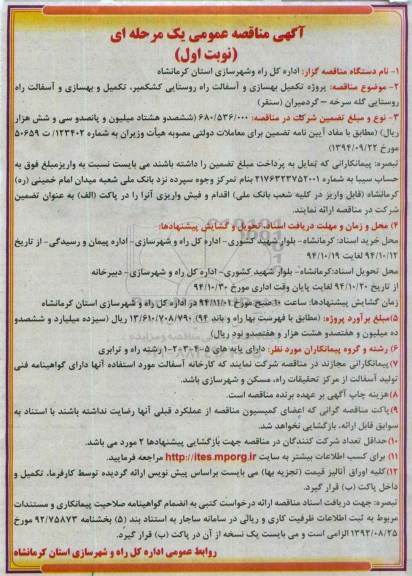 آگهی مناقصه عمومی یک مرحله ای
(نوبت اول)
۱- نام دستگاه مناقصه گزار: اداره کل راه وشهرسازی استان کرمانشاه
۲- موضوع مناقصه: پروژه تکمیل بهسازی و آسفالت راه روستایی کشکمیر، تکمیل و بهسازی و آسفالت راه
روستایی گله سرخه – گردمیران (سنقر)
۳- نوع و مبلغ تضمین شرکت در مناقصه: ۶۸۰/۵۳۶/۰۰۰ (ششصدو هشتاد میلیون و پانصدو سی و شش هزار
ریال) (مطابق با مفاد آیین نامه تضمین برای معاملات دولتی مصوبه هیأت وزیران به شماره ۱۲۳۴۰۲/ ت ۵۰۶۵۹
مورخ ۱۳۹۴/۰۹/۲۲)
تبصره: پیمانکارانی که تمایل به پرداخت مبلغ تضمین را داشته باشند می بایست نسبت به واریزمبلغ فوق به
حساب سیبا به شماره ۲۱۷۶۳۲۳۷۵۲۰۰۱ بنام تمرکز وجوه سپرده نزد بانک ملی شعبه میدان امام خمینی (ره)
کرمانشاه (قابل واریز در کلیه شعب بانک ملی) اقدام و فیش واریزی آنرا را در پاکت (الف) به عنوان تضمین
شرکت در مناقصه ارائه نمایند.
۴) محل و زمان و مهلت دریافت اسناد، تحویل و گشایش پیشنهادها:
محل خرید اسناد: کرمانشاه- بلوار شهید کشوری - اداره کل راه و شهرسازی- اداره پیمان و رسیدگی- از تاریخ
۹۴/۱۰/۱۲ لغایت ۹۴/۱۰/۱۹
محل تحویل اسناد:کرمانشاه- بلوار شهید کشوری- اداره کل راه و شهرسازی- دبیرخانه
از تاریخ ۹۴/۱۰/۲۰ لغایت پایان وقت اداری مورخ ۹۴/۱۰/۳۰
زمان گشایش پیشنهادها: ساعت ۱۰ صبح مورخ ۹۴/۱۱/۰۱ در اداره کل راه و شهرسازی استان کرمانشاه
۵)مبلغ برآورد پروژه: (مطابق با فهرست بها راه و باند ۹۴) ۱۳/۶۱۰/۷۰۸/۷۹۰ ریال (سیزده میلیارد و ششصدو
ده میلیون و هفتصدو هشت هزار و هفتصدو نود ریال)
۶) رشته و گروه پیمانکاران مورد نظر: دارای پایه های ۵-۴-۳-۲-۱ رشته راه و ترابری
۷) پیمانکارانی مجازند در مناقصه شرکت نمایند که کارخانه آسفالت مورد استفاده آنها دارای گواهینامه فنی
تولید آسفالت از مرکز تحقیقات راه، مسکن و شهرسازی باشد.
۸)هزینه چاپ آگهی بر عهده برنده مناقصه است.
۹)پاکت مناقصه گرانی که اعضای کمیسیون مناقصه از عملکرد قبلی آنها رضایت نداشته باشند با استناد به
سوابق قابل ارائه، بازگشایی نخواهد شد.
۱۰)حداقل تعداد شرکت کنندگان در مناقصه جهت بازگشایی پیشنهادها ۲ مورد می باشد.
۱۱) برای کسب اطلاعات بیشتر به سایت http://ites.mporg.ir مراجعه فرمایید.
۱۲)کلیه اوراق آنالیز قیمت (تجزیه بها) می بایست براساس پیش نویس ارائه گردیده توسط کارفرما، تکمیل و
داخل پاکت (ب) قرار گیرد.
تبصره: جهت دریافت اسناد مناقصه ارائه درخواست کتبی به انضمام گواهینامه صلاحیت پیمانکاری و مستندات
مربوط به ثبت اطلاعات ظرفیت کاری و ریالی در سامانه ساجار به استناد بند (۵) بخشنامه ۹۲/۷۵۸۷۳ مورخ
۱۳۹۲/۰۸/۲۵ الزامی است و می بایست یک نسخه از آن در پاکت (ب) قرار گیرد.
روابط عمومی اداره کل راه و شهرسازی استان کرمانشاه